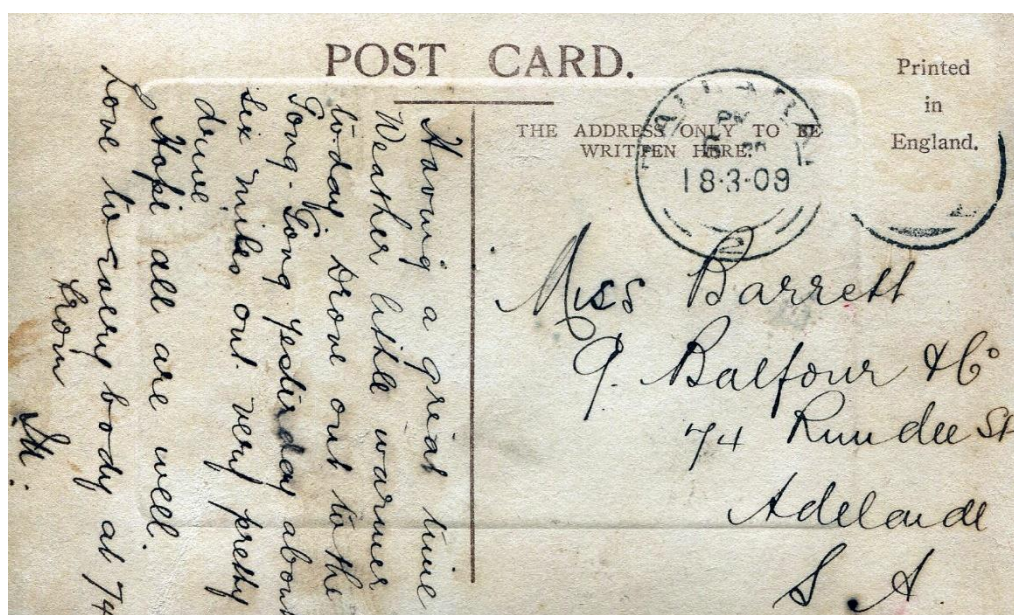 POST CARD.
Printed
in
England.
THE ADDRESS ONLY TO BE
WRITTEN HERE.
18·3·09
Having a great time
Weather little warmer
to-day Drove out to the
Gong-Gong yesterday about
six miles out. very pretty
drive
Hope all are well.
Love to every body at 74
From
Miss Barrett
Balfour & Co
74 Rundle St
Adelaide
S A.